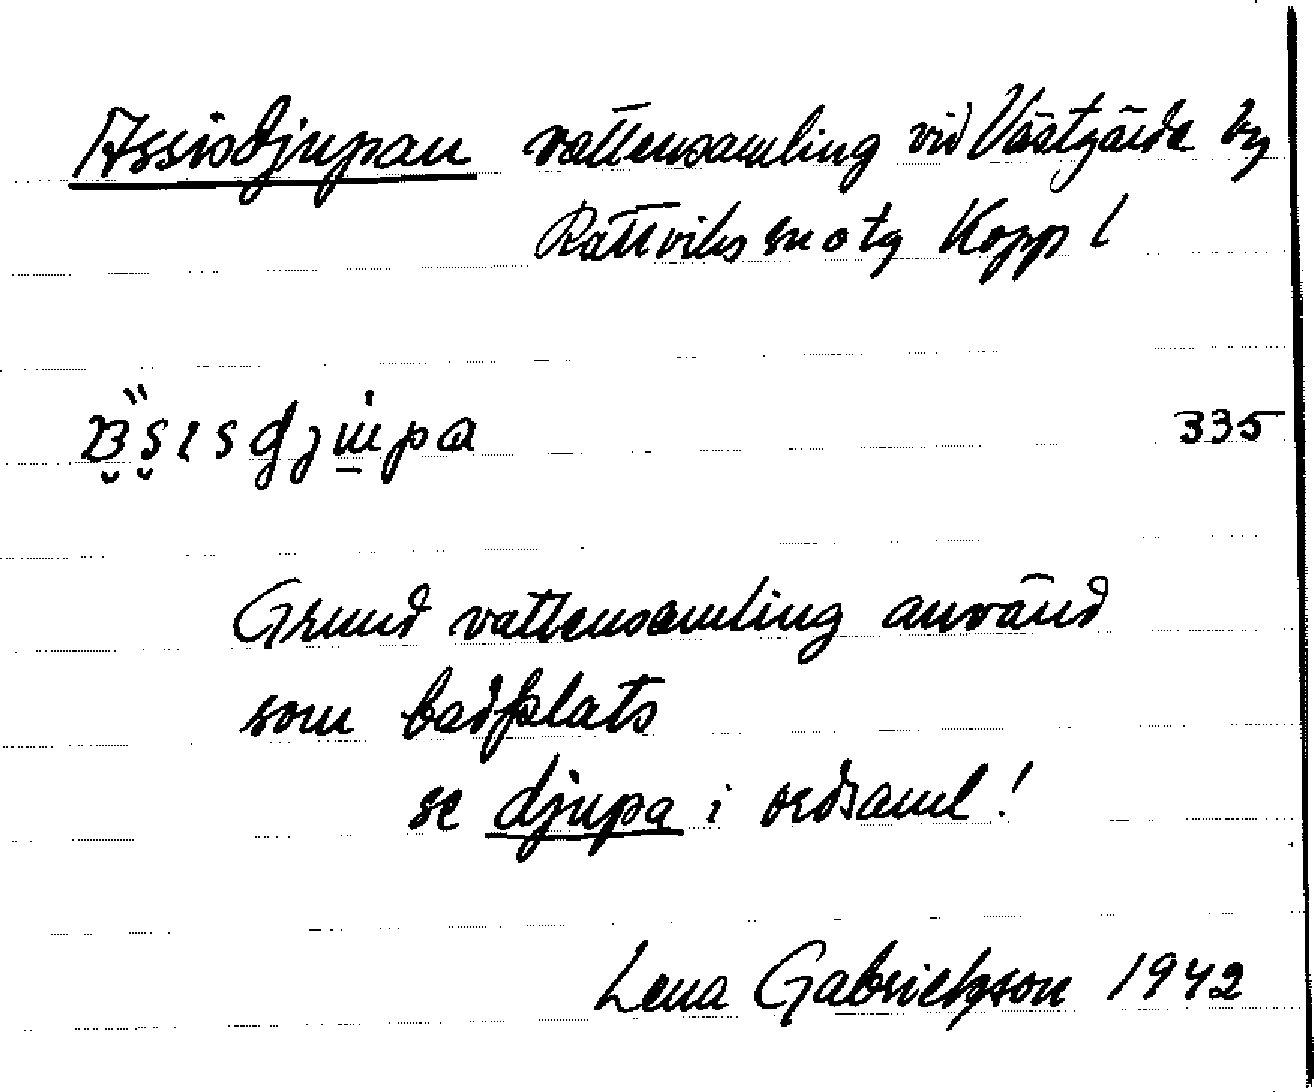 Assisdjupan vattensamling vid Västgärde by
Rättviks sn o tg Kopp l
335
Grund vattensamling använd
som badplats
se djupa i ordsaml!
Lena Gabrielsson 1942